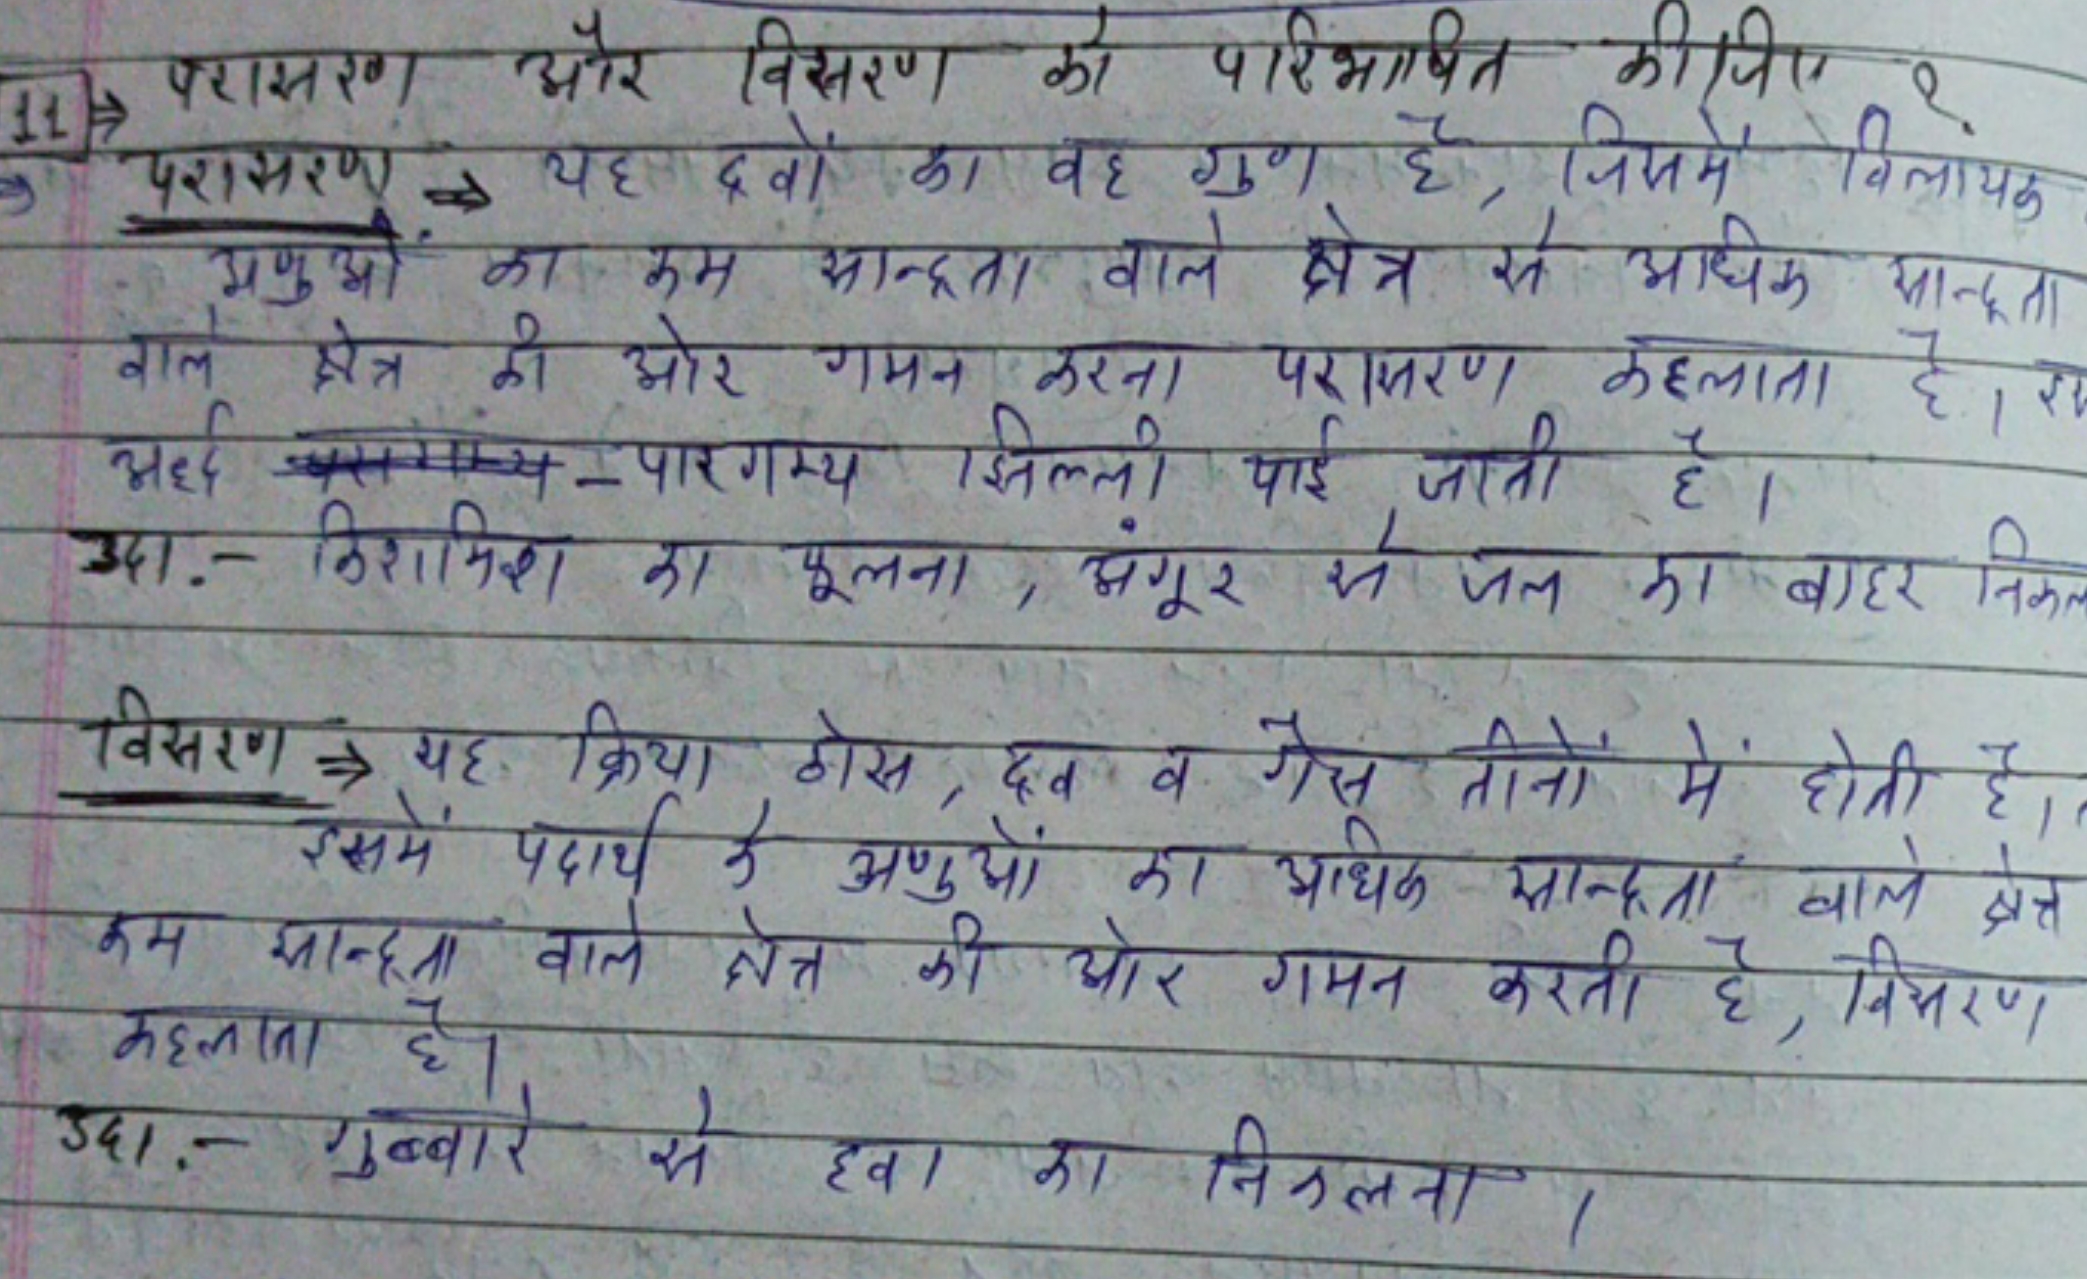 11⇒ परासरण और विसरण को परिभाषित कीजिए ?
परासरण ⇒ यह द्रवों का वह गुण है, जिसमें विलायक
अणुओं का कम सान्द्रता वाले क्षेत्र से अधिक सान्द्रता
वाले क्षेत्र की ओर गमन करना परासरण कहलाता है।
अर्द्द -पारगम्य झिल्ली पाई जाती है।
उदा.- किशमिश का फूलना, अंगूर से जल का बाहर निकल
विसरण ⇒ यह क्रिया ठोस, द्रव व गैस तीनों में होती है।
इसमें पदार्थ के अणुओं का अधिक सान्द्रता वाले क्षेत्र
कम सान्द्रता वाले क्षेत्र की ओर गमन करती है, विसरण
कहलाता है।
उदा.- गुब्बारे से हवा का निकलना।